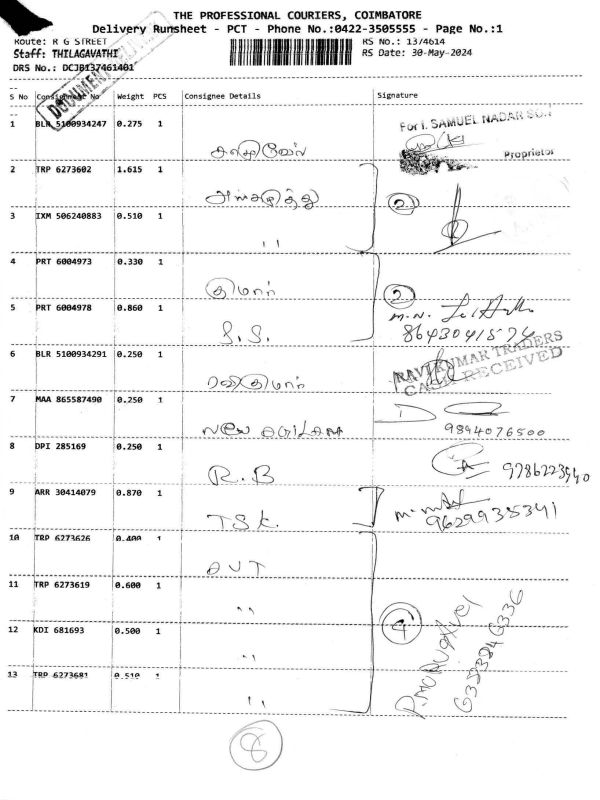 THE PROFESSIONAL COURIERS, COIMBATORE
Delivery Runsheet - PCT - Phone No.:0422-3505555 - Page No.:1
Route: R G STREET
RS No.: 1374614
Staff: THILAGAVATHI
RS Date: 30-May-2024
DRS No.: DCJB137461401
S No Consignment No Weight PCS Consignee Details Signature
1 BLR 5100934247 0.275 1
For I. SAMUEL NADAR SON
Proprietor
2 TRP 6273602 1.615 1
2
3 IXM 506240883 0.510 1
,,
4 PRT 6004973 0.330 1
குமார்
2
5 PRT 6004978 0.860 1
S.S.
M.N.
8643041574
6 BLR 5100934291 0.250 1
ரவிகுமார்
RAVI KUMAR TRADERS
RECEIVED
7 MAA 865587490 0.250 1
9894076500
8 DPI 285169 0.250 1
R.B
9786223940
9 ARR 30414079 0.870 1
TSK.
9629935341
10 TRP 6273626 0.400 1
AVT
11 TRP 6273619 0.600 1
,,
4
6383846336
12 KDI 681693 0.500 1
,,
13 TRP 6273681 0.510 1
,,
8